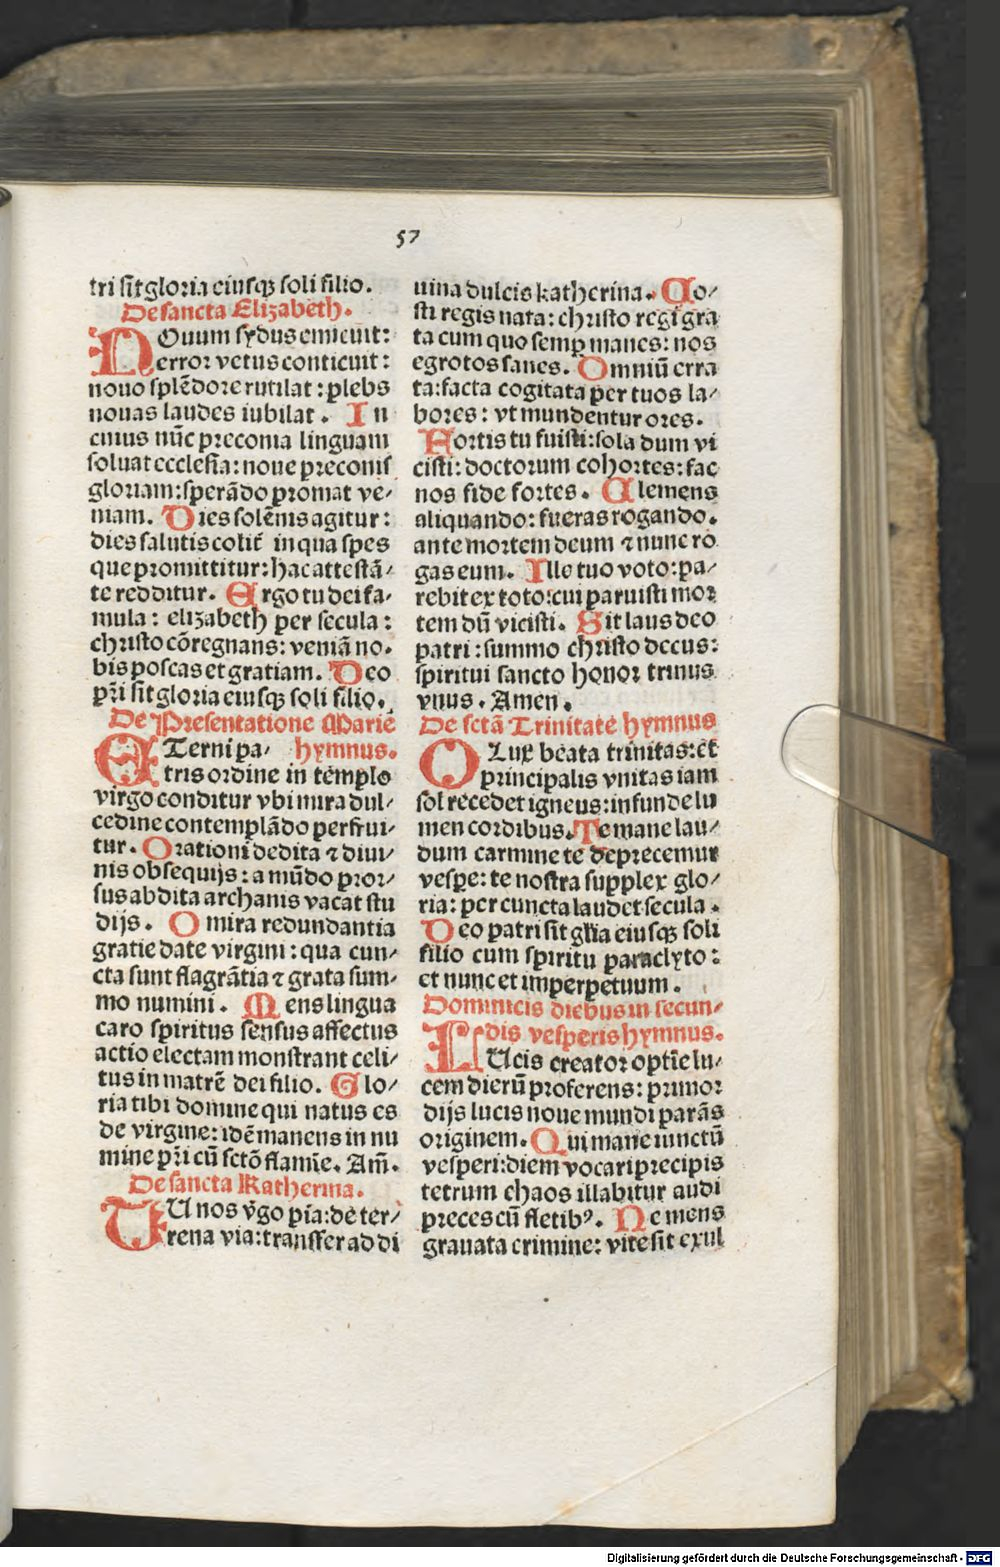 57
tri sit gloria eiusqꝫ soli filio.
De sancta Elizabeth.
NOuum sydus emicuit:
error vetus conticuit:
nouo splēdore rutilat: plebs
nouas laudes iubilat. In
cuius nūc preconia linguam
soluat ecclesia: noue preconis
gloriam: sperādo promat ve⸗
niam. Dies solēnis agitur:
dies salutis colit᷑ in qua spes
que promittitur: hac attestā⸗
te redditur. Ergo tu dei fa⸗
mula: elizabeth per secula:
christo cōregnans: veniā no⸗
bis poscas et gratiam. Deo
pr̄i sit gloria eiusqꝫ soli filio.
De Presentatione Marie
hymnus.
ETerni pa⸗
tris ordine in templo
virgo conditur vbi mira dul⸗
cedine contemplādo perfrui⸗
tur. Orationi dedita ⁊ diui⸗
nis obsequijs: a mūdo pror⸗
sus abdita archanis vacat stu
dijs. O mira redundantia
gratie date virgini: qua cun⸗
cta sunt flagrātia ⁊ grata sum⸗
mo numini. Mens lingua
caro spiritus sensus affectus
actio electam monstrant celi⸗
tus in matrē dei filio. Glo⸗
ria tibi domine qui natus es
de virgine: idē manens in nu
mine pr̄i cū sctō flamīe. Am̄.
De sancta Katherina.
TU nos v̄go pia: de ter⸗
rena via: transfer ad di
uina dulcis katherina. Co⸗
sti regis nata: christo regi gra
ta cum quo semꝑ manes: nos
egrotos sanes. Omniū erra
ta: facta cogitata per tuos la⸗
bores: vt mundentur ores.
Fortis tu fuisti: sola dum vi
cisti: doctorum cohortes: fac
nos fide fortes. Clemens
aliquando: fueras rogando.
ante mortem deum ⁊ nunc ro
gas eum. Ille tuo voto: pa⸗
rebit ex toto: cui paruisti mor
tem dū vicisti. Sit laus deo
patri: summo christo decus:
spiritui sancto honor trinus
vnus. Amen.
De sctā Trinitate hymnus
O Lux beata trinitas: et
principalis vnitas iam
sol recedet igneus: infunde lu
men cordibus. Te mane lau⸗
dum carmine te deprecemur
vespe: te nostra supplex glo⸗
ria: per cuncta laudet secula.
Deo patri sit gl̄ia eiusqꝫ soli
filio cum spiritu paraclyto:
et nunc et imperpetuum.
Dominicis diebus in secun⸗
dis vesperis hymnus.
LUcis creator optīe lu⸗
cem dierū proferens: primor
dijs lucis noue mundi parās
originem. Qui mane iunctū
vesperi: diem vocari precipis
tetrum chaos illabitur audi
preces cū fletibꝰ. Ne mens
grauata crimine: vite sit exul
Digitalisierung gefördert durch die Deutsche Forschungsgemeinschaft - DFG